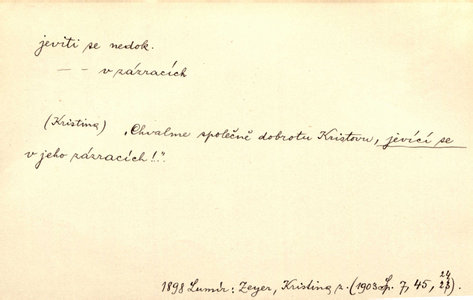 jeviti se nedok.
— — v zázracích
(Kristina) „Chvalme společně dobrotu Kristovu, jevící se
v jeho zázracích!..“
1898 Lumír: Zeyer, Kristina z. (1903 7, 45, 24